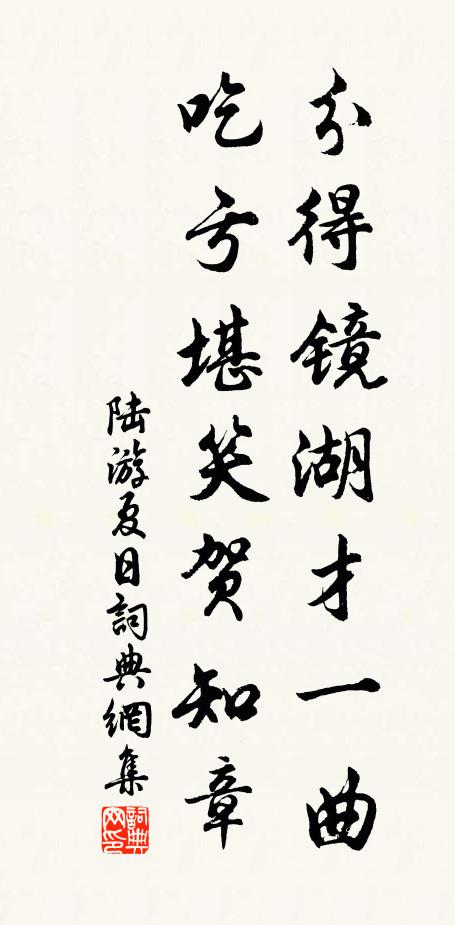 分得镜湖才一曲
吃亏堪笑贺知章
陆游夏日詞典網集
詞典网印